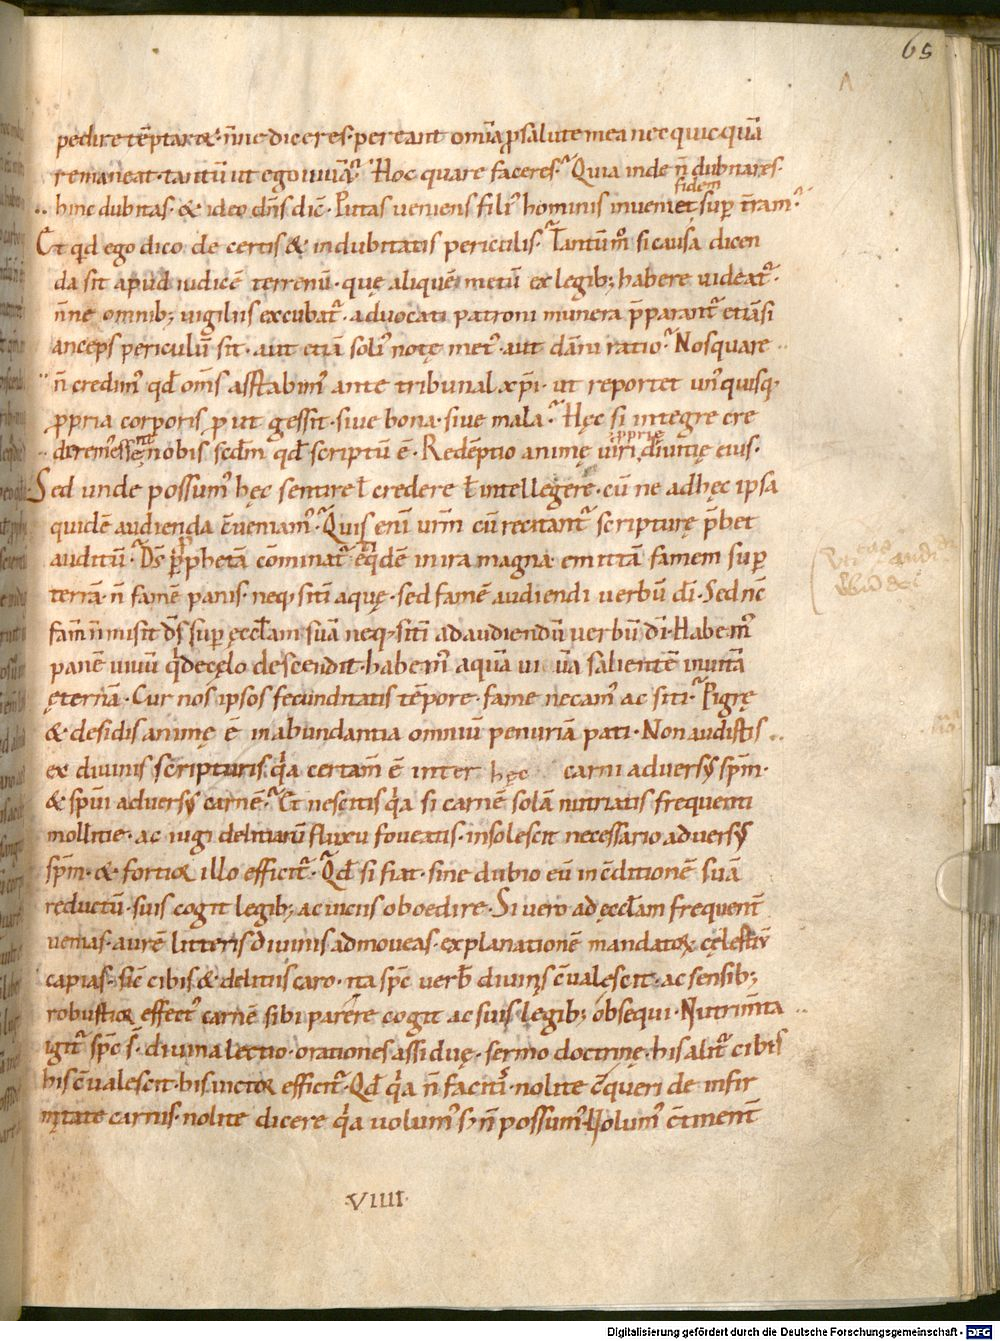 65
pedire tēptaret· n̄ne diceres· pereant om̄ia p̱ salute mea nec quicquā
remaneat· tantū ut ego uiuā· Hoc quare faceres· Quia inde n̄ dubitares·
fidem
hinc dubitas· & ideo dn̄s dic̄· Putas ueniens fili' hominis inueniet sup̱ t̄ram·
Et qd ego dico de certis & indubitatis periculis· Tantūm' si causa dicen
da sit apud iudicē terrenū· quę aliquē metū ex legib; habere uideat'·
n̄ne omnib; uigiliis excubat'· aduocati patroni munera p̄parant' etiāsi
anceps periculū sit· aut etiā soli' notę met'· aut dāni ratio· Nos quare
n̄ credim' qd om̄s asstabim' ante tribunal xp̄i· ut reportet un'quisq·
p̱pria corporis p̱ut gessit· siue bona· siue mala· Hęc si integre cre
derem' essent nobis scdm̄ qd scriptū ē· Redēptio animę uiri p̱prię diuitię eius·
Sed unde possum' hęc sentire ł credere ł intellegere· cū ne ad hęc ipsa
quidē audienda c̄ueniam'· Quis eni' ur̄m cū recitant' scripturę p̄bet
auditū· Ds̄ p̱ p̱phetā cōminat' & qdē in ira magna· emittā famem sup̱
terrā· n̄ famē panis· neq; sitī aquę· sed famē audiendi uerbū dī· Sed nc̄
fam̄ n̄ misit ds̄ sup̱ ęccłam suā neq; sitī ad audiendū uerbū dī· Habem'
panē uiuū q'dęcęlo descendit· habem' aquā ui uā salientē in uitā
ęternā· Cur nos ipsos fecunditatis tēpore· fame necam' ac siti· Pigrę
& desidis animę ē in abundantia omniū penuriā pati· Non audistis
ex diuinis scripturis q'a certam̄ ē inter hęc carni aduersus spm̄·
& spui aduersus carnē· Et nescitis q'a si carnē solā nutriatis frequenti
mollitie· ac iugi delitiarū fluxu foueatis· insolescit necessario aduersus
spm̄· & fortior illo efficit'· Qd si fiat· sine dubio eū in c̄ditionē suā
reductū· suis cogit legib; ac uiciis oboedire· Si uero ad ęccłam frequent̄
uenias· aurē litteris diuinis admoueas· explanationē mandator cęlestiū
capias· sic̄ cibis & delitiis caro· ita spc̄ uerb̄ diuinis c̄ualescit· ac sensib;
robustior effect' carnē sibi parere cogit ac suis legib; obsequi· Nutrim̄ta
igit' spc̄ s̄· diuina lectio· orationes assiduę· sermo doctrinę· his alit' cibis
his c̄ualescit· his uictor efficit'· Qd q'a n̄ faciti'· nolite c̄queri de infir
mitate carnis· nolite dicere q'a uolum' s; n̄ possum'· Nolum' c̄tinent̄
VIIII·
Digitalisierung gefördert durch die Deutsche Forschungsgemeinschaft - DFG